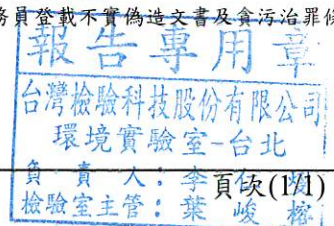 務員登載不實偽造文書及貪污治罪條
報告專用章
台灣檢驗科技股份有限公司
環境實驗室-台北
負責人：李
頁次(1/1)
檢驗室主管：葉峻榕